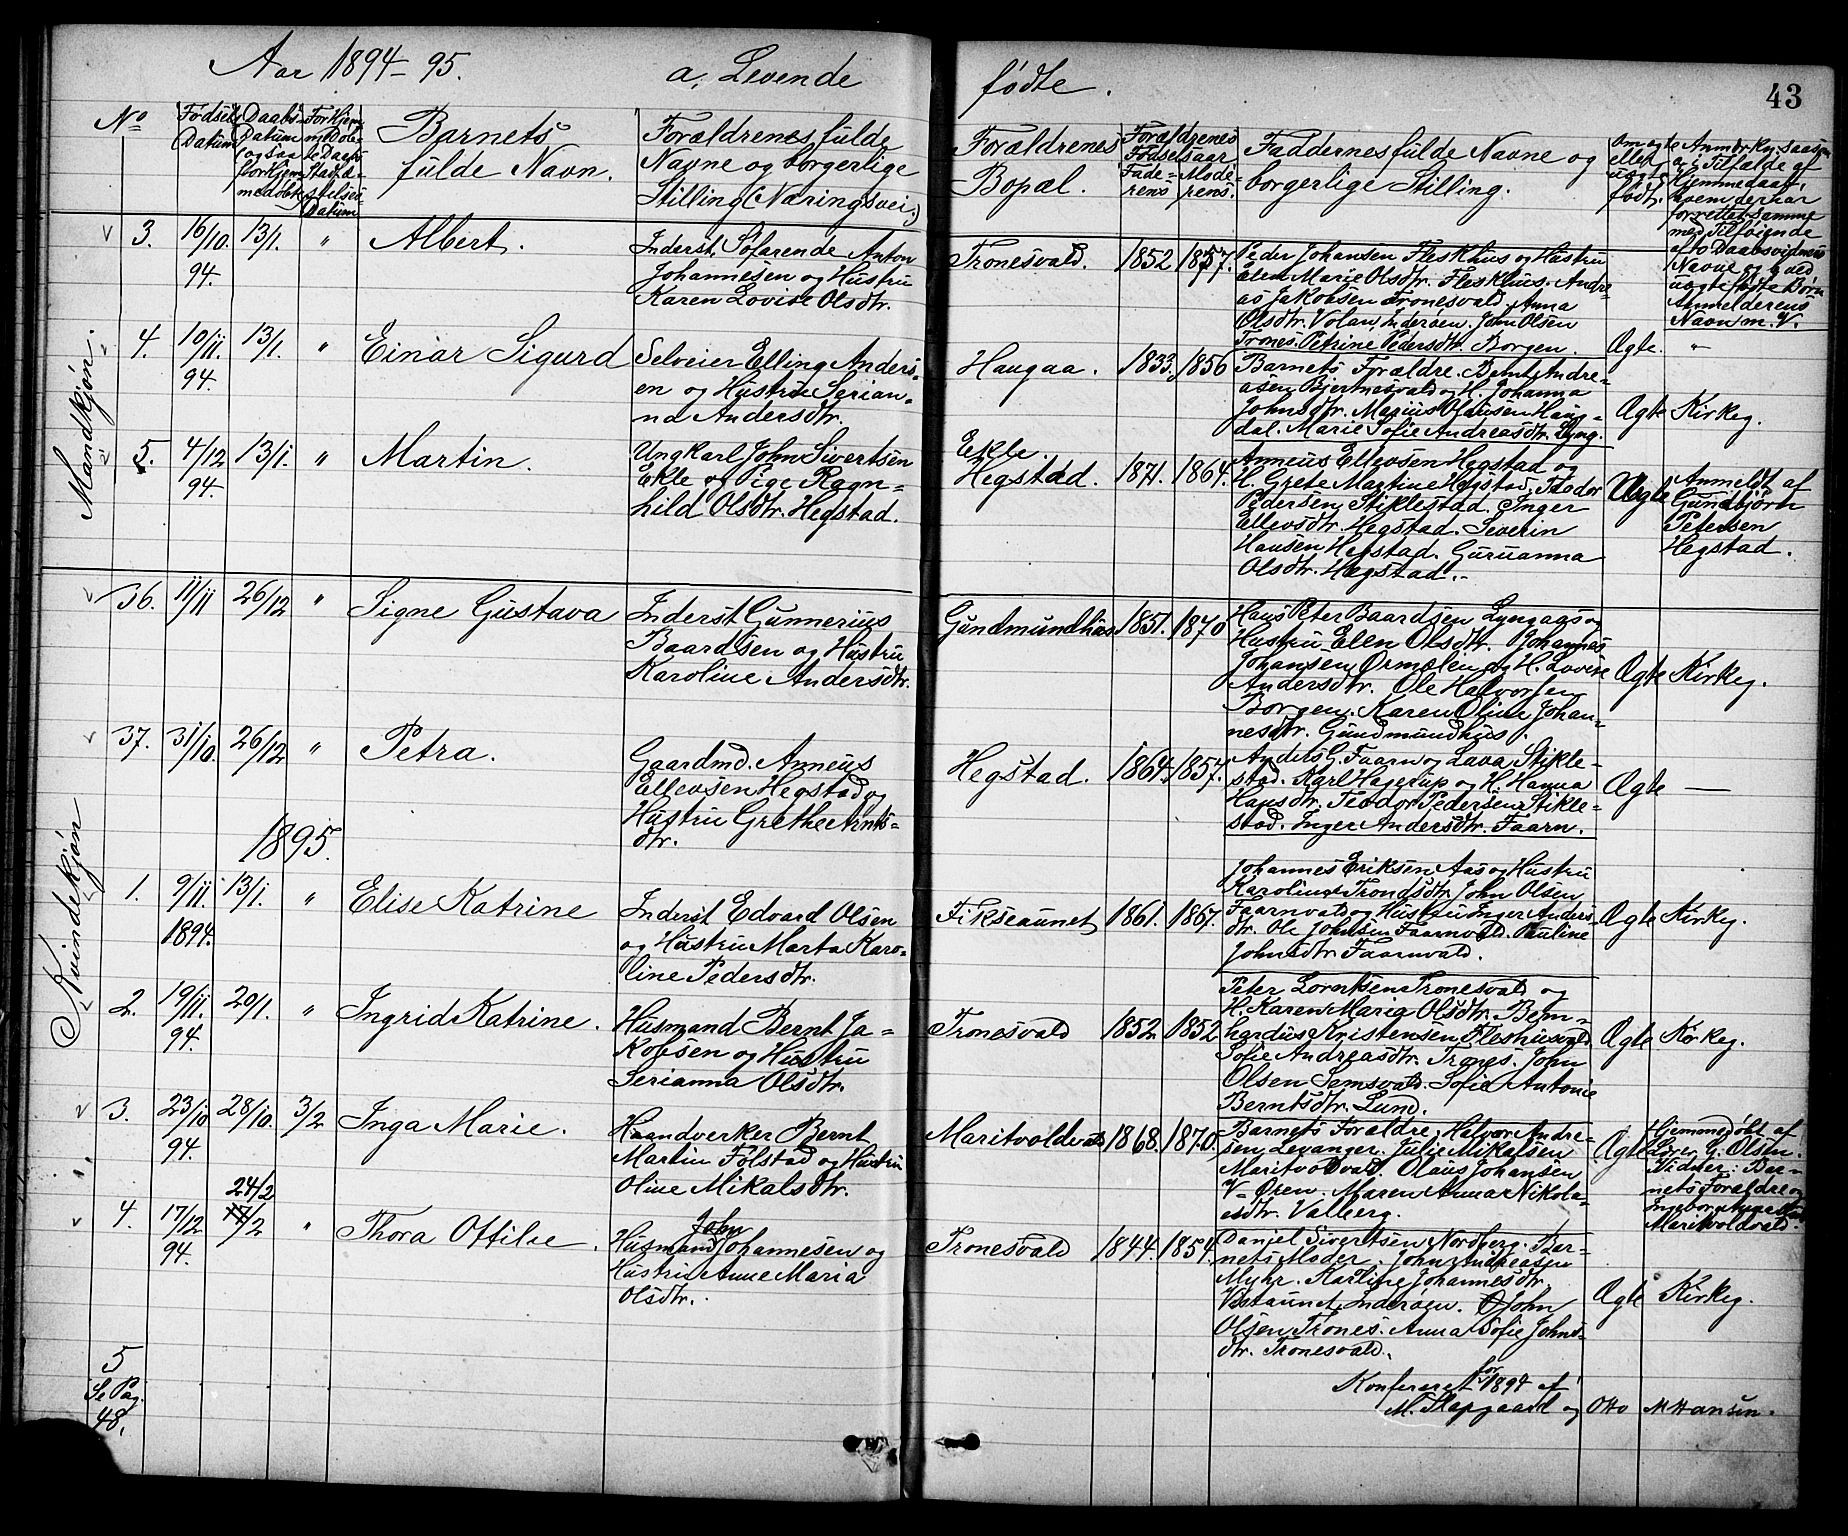 Aar 1894-95.
a, Levende
fødte.
43
No
Fødsels
Datum
Daabs-
Datum
og saa
Barnets
fulde Navn.
Forældrenes fulde
Navne og borgerlige
Stilling (Næringsvei.)
Forældrenes
Bopæl.
Forældrenes
Fødselsaar.
Fade-
rens
Mode-
rens.
Faddernes fulde Navne og
borgerlige Stilling.
Om ægte
eller
uægte
født.
Anmærkn. saasom
i Tilfælde af
Hjemmedaab,
hvem der har
forrettet samme
med Tilføiende
af to Daabsvidners
Navne og ved
uægte fødte Børn
Anmelderens
Navn m. V.
Mandkjøn.
3.
16/10.
94.
13/1.
"
Albert.
Inderst, Søfarende Anton
Johannesen og Hustru
Karen Lovise Olsdtr.
Tronesvald.
1852
1857.
Peder Johansen Fleskhus og Hustru
Elen Marie Olsdtr. Fleskhus. Andre-
as Jakobsen Tronesvald. Anna
Olsdtr. Volan Inderøen. John Olsen
Trones. Petrine Pedersdtr. Borgen.
Ægte.
"
4.
10/11.
94.
13/1.
"
Einar Sigurd
Selveier Elling Anders-
en og Hustru Serian-
na Andersdtr.
Haugaa.
1833.
1856
Barnets Forældre. Bernt Andre-
asen Bjertnesvald og H. Johanna
Johnsdtr. Marius Olausen Haug-
dal. Marie Sofie Andreasdtr. Lyng.
Ægte
Kirkeg.
5.
4/12
94.
13/1.
"
Martin.
Ungkarl John Sivertsen
Ekle og Pige Ragn-
hild Olsdtr. Hegstad.
Ekle.
Hegstad.
1871.
1864.
Anneus Ellevsen Hegstad og
H. Grete Martine Hegstad. Teodor
Pedersen Stiklestad. Inger
Ellevsdtr. Hegstad. Severin
Hansen Hegstad. Guruanna
Olsdtr. Hegstad.
Uægte
Anmeldt af
Gundbjørn
Petersen
Hegstad.
Kvindekjøn
36.
11/11
26/12
"
Signe Gustava
Inderst Gunnerius
Baardsen og Hustru
Karoline Andersdtr.
Gundmundhus
1851.
1870
Hans Peter Baardsen Lyngaas og
Hustru Ellen Olsdtr. Johannes
Johansen Ørmelen og H. Lovise
Andersdtr. Ole Halvorsen
Borgen. Karen Oline Johan-
nesdtr. Gundmundhus.
Ægte
Kirkeg.
37.
31/10
26/12
"
Petra.
Gaardmd. Anneus
Ellevsen Hegstad og
Hustru Grethe Arnts-
dtr.
Hegstad.
1864.
1857.
Anders G. Faarn og Lava Stikle-
stad. Karl Hagerup og H. Hanna
Hansdtr. Teodor Pedersen Stikle-
stad. Inger Andersdtr. Faarn.
Ægte
—
1895.
1.
9/11
1894.
13/1.
"
Elise Katrine
Inderst Edvard Olsen
og Hustru Marta Karo-
line Pedersdtr.
Fikseaunet
1861.
1867.
Johannes Eriksen Aas og Hustru
Karoline Trondsdtr. John Olsen
Faarnvald og Hustru Inger Anders
dtr. Ole Johnsen Faarnvald. Pauline
Johnsdtr. Faarnvald.
Ægte
Kirkeg.
2.
19/11.
94.
20/1.
"
Ingrid Katrine.
Husmand Bernt Ja-
kobsen og Hustru
Serianna Olsdtr.
Tronesvald
1852
1852
Peter Lorntsen Tronesvald og
H. Karen Maria Olsdtr. Bern-
hardus Kristensen Fleshusvald
Sofie Andreasdtr. Trones. John
Olsen Semsvald. Sofie Antonie
Berntsdtr. Lund.
Ægte
Kirkeg.
3.
23/10
94.
28/10.
3/2
Inga Marie.
Haandverker Bernt
Martin Følstad og Hustru
Oline Mikalsdtr.
Maritvoldvald
1868.
1870.
Barnets Forældre. Halvor Andre-
sen Levanger. Julie Mikalsen
Maritvoldvald. Olaus Johansen
V-Øren. Maren Anna Nikola-
isdtr. Valberg.
Ægte
Hjemmedøbt af
Lærer G. Olsen.
Vidner: Bar-
nets Forældre og
Maritvoldvald.
4.
17/12
94.
24/2
17/2
"
Thora Ottilie.
John
Husmand Johannesen og
Hustru Anne Maria
Olsdtr.
Tronesvald
1844.
1854.
Daniel Sivertsen Nordberg. Bar-
nets Moder. John Andreasen
Myhr. Karline Johannesdtr.
Vistaunet, Inderøen. John
Olsen Trones. Anna Sofie Johns-
dtr. Tronesvald.
Ægte
Kirkeg.
5
Se Pag.
48.
for
Konfereret 1894 af
M. Slapgaard og Otto M Hansen.